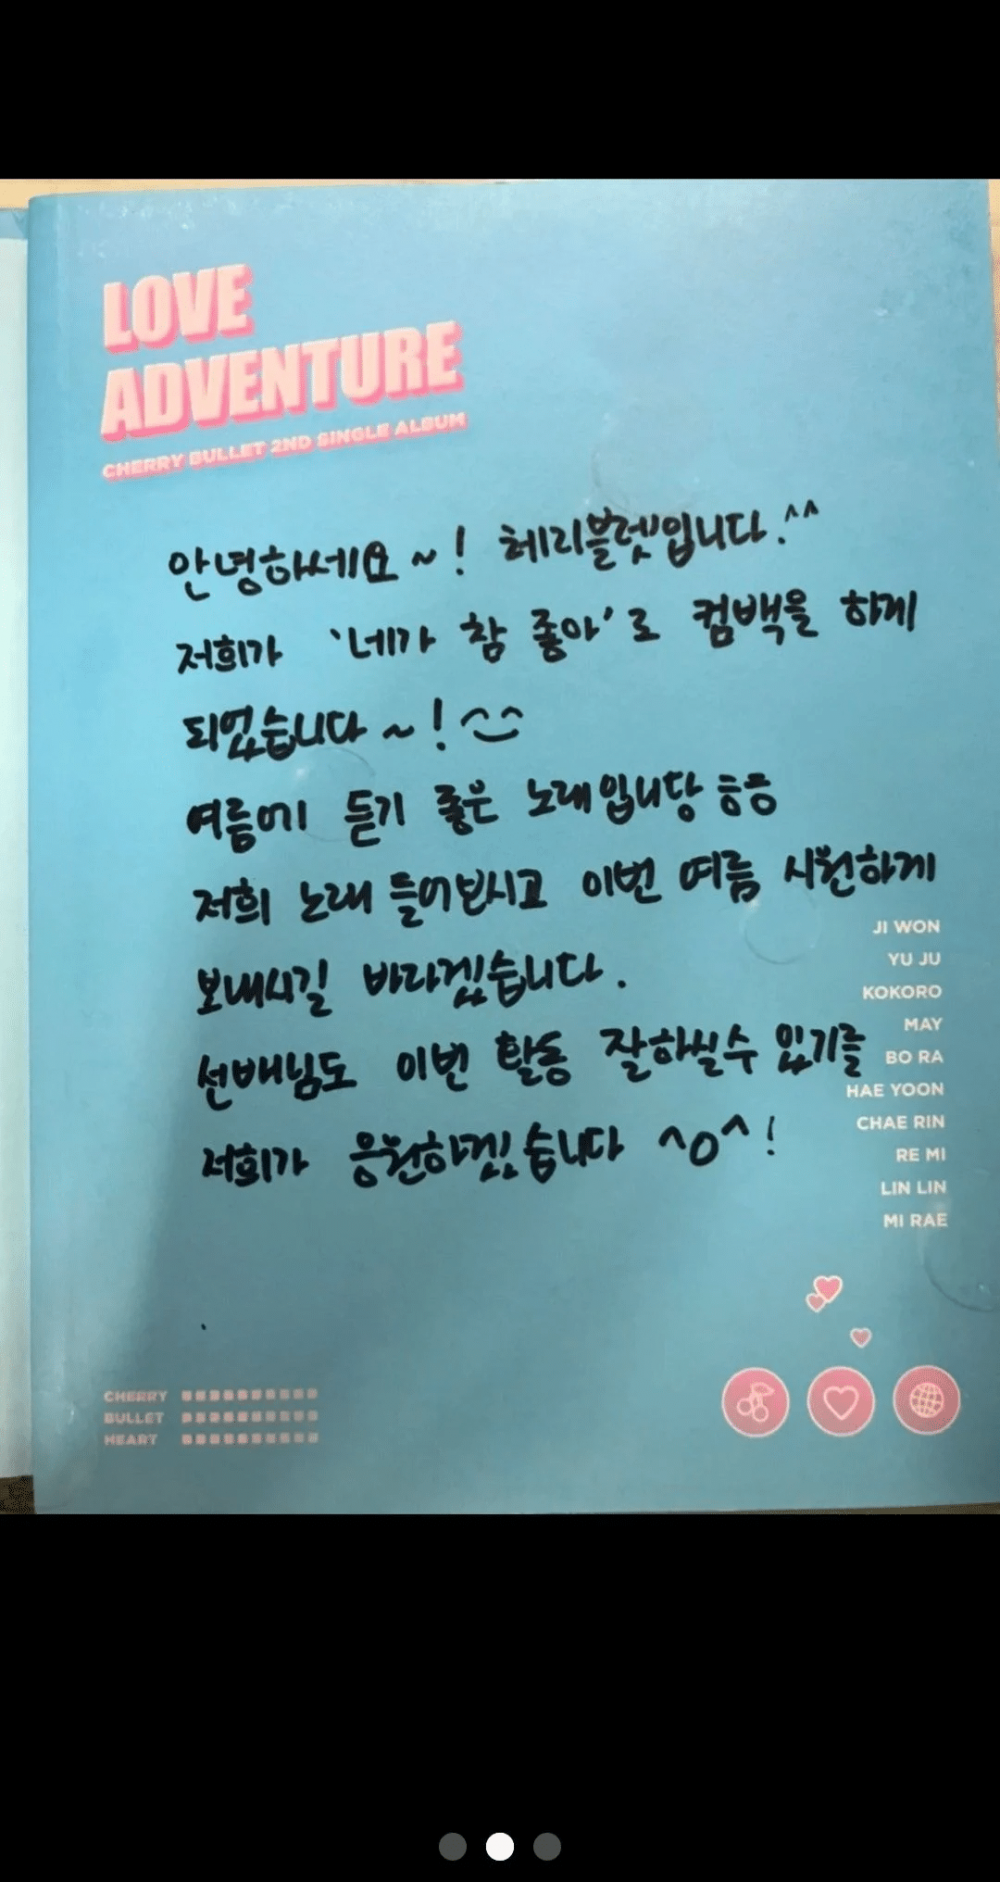 LOVE
ADVENTURE
CHERRY BULLET 2ND SINGLE ALBUM
안녕하세요~! 체리블렛입니다.^^
저희가 '네가 참 좋아'로 컴백을 하게
되었습니다~!^^
여름에 듣기 좋은 노래입니당 ㅎㅎ
저희 노래 들어보시고 이번 여름 시원하게
보내시길 바라겠습니다.
선배님도 이번 활동 잘하실수 있기를
저희가 응원하겠습니다 ^o^!
JI WON
YU JU
KOKORO
MAY
BO RA
HAE YOON
CHAE RIN
RE MI
LIN LIN
MI RAE
CHERRY
BULLET
HEART